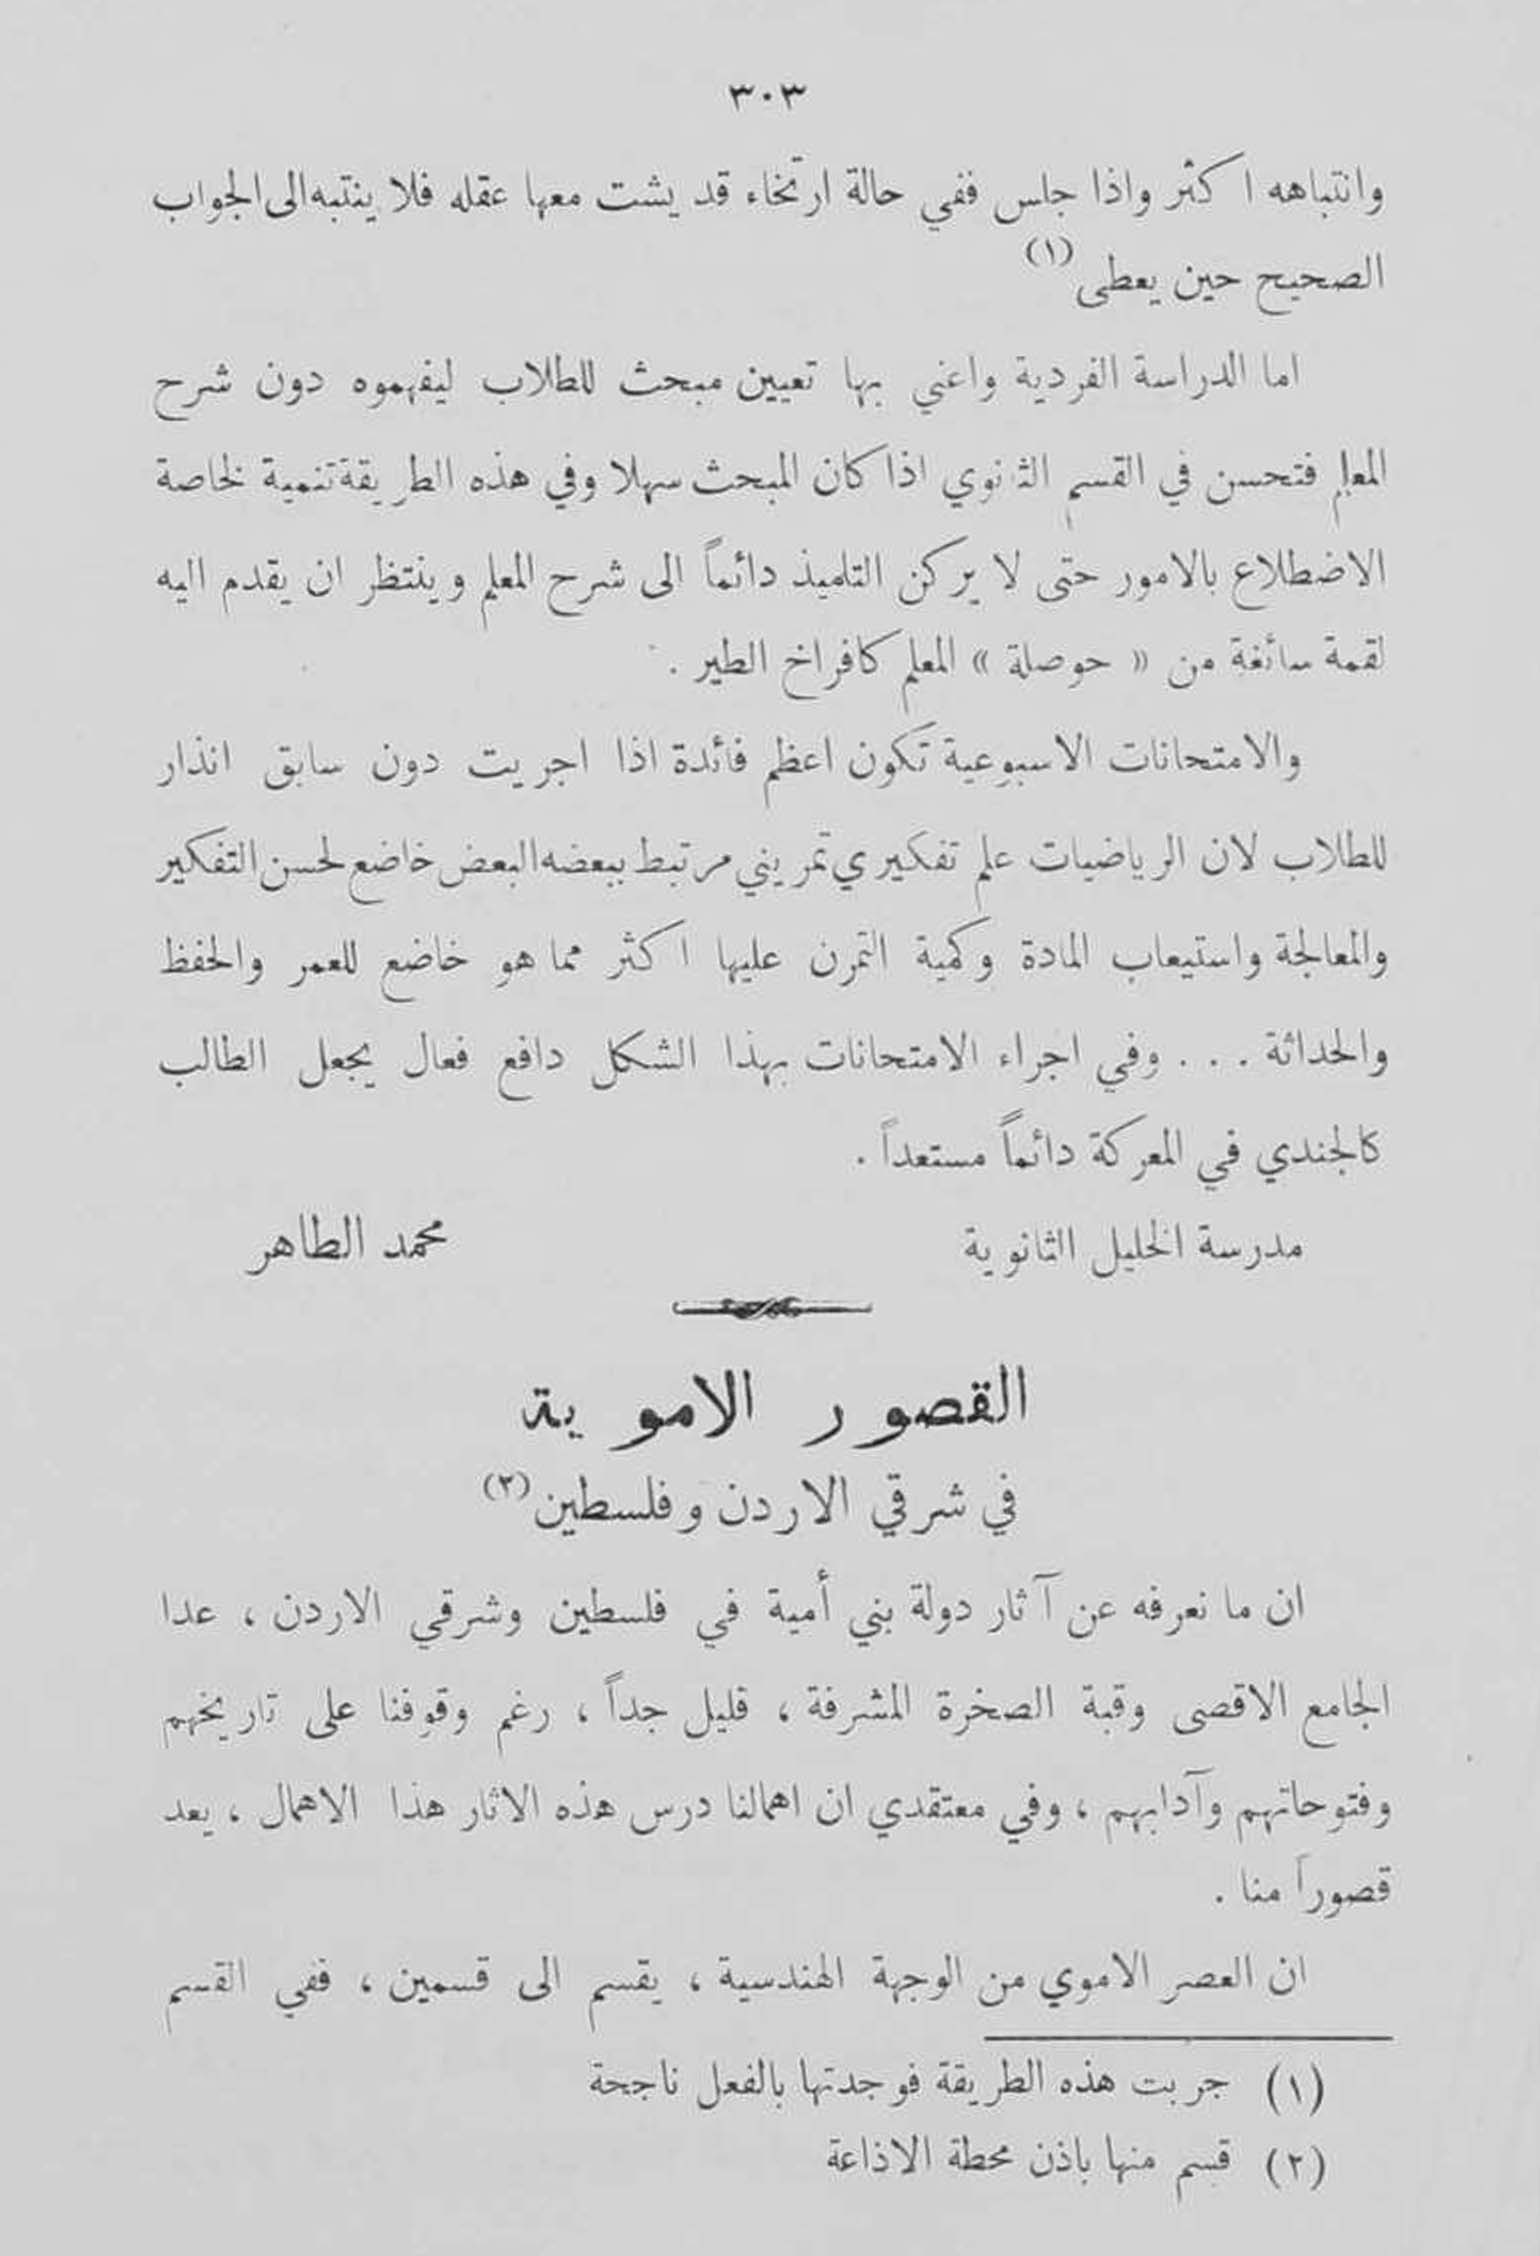 ٣٠٣
وانتباهه اكثر واذا جلس ففي حالة ارتخاء قد يشت معها عقله فلا ينتبه الى الجواب
الصحيح حين يعطى (١)
اما الدراسة الفردية واعني بها تعيين مبحث للطلاب ليفهموه دون شرح
المعلم فتحسن في القسم الثانوي اذا كان المبحث سهلا وفي هذه الطريقة تنمية لخاصة
الاضطلاع بالامور حتى لا يركن التلميذ دائماً الى شرح المعلم وينتظر ان يقدم اليه
لقمة سائغة من « حوصلة » المعلم كافراخ الطير .
والامتحانات الاسبوعية تكون اعظم فائدة اذا اجريت دون سابق انذار
للطلاب لان الرياضيات علم تفكيري تمريني مرتبط ببعضه البعض خاضع لحسن التفكير
والمعالجة واستيعاب المادة وكمية التمرن عليها اكثر مما هو خاضع للعمر والحفظ
والحداثة . . . وفي اجراء الامتحانات بهذا الشكل دافع فعال يجعل الطالب
كالجندي في المعركة دائماً مستعداً .
مدرسة الخليل الثانوية محمد الطاهر
القصور الاموية
في شرقي الاردن وفلسطين (٢)
ان ما نعرفه عن آثار دولة بني أمية في فلسطين وشرقي الاردن ، عدا
الجامع الاقصى وقبة الصخرة المشرفة ، قليل جداً ، رغم وقوفنا على تاريخهم
وفتوحاتهم وآدابهم ، وفي معتقدي ان اهمالنا درس هذه الاثار هذا الاهمال ، يعد
قصوراً منا .
ان العصر الاموي من الوجهة الهندسية ، يقسم الى قسمين ، ففي القسم
(١) جربت هذه الطريقة فوجدتها بالفعل ناجحة
(٢) قسم منها باذن محطة الاذاعة